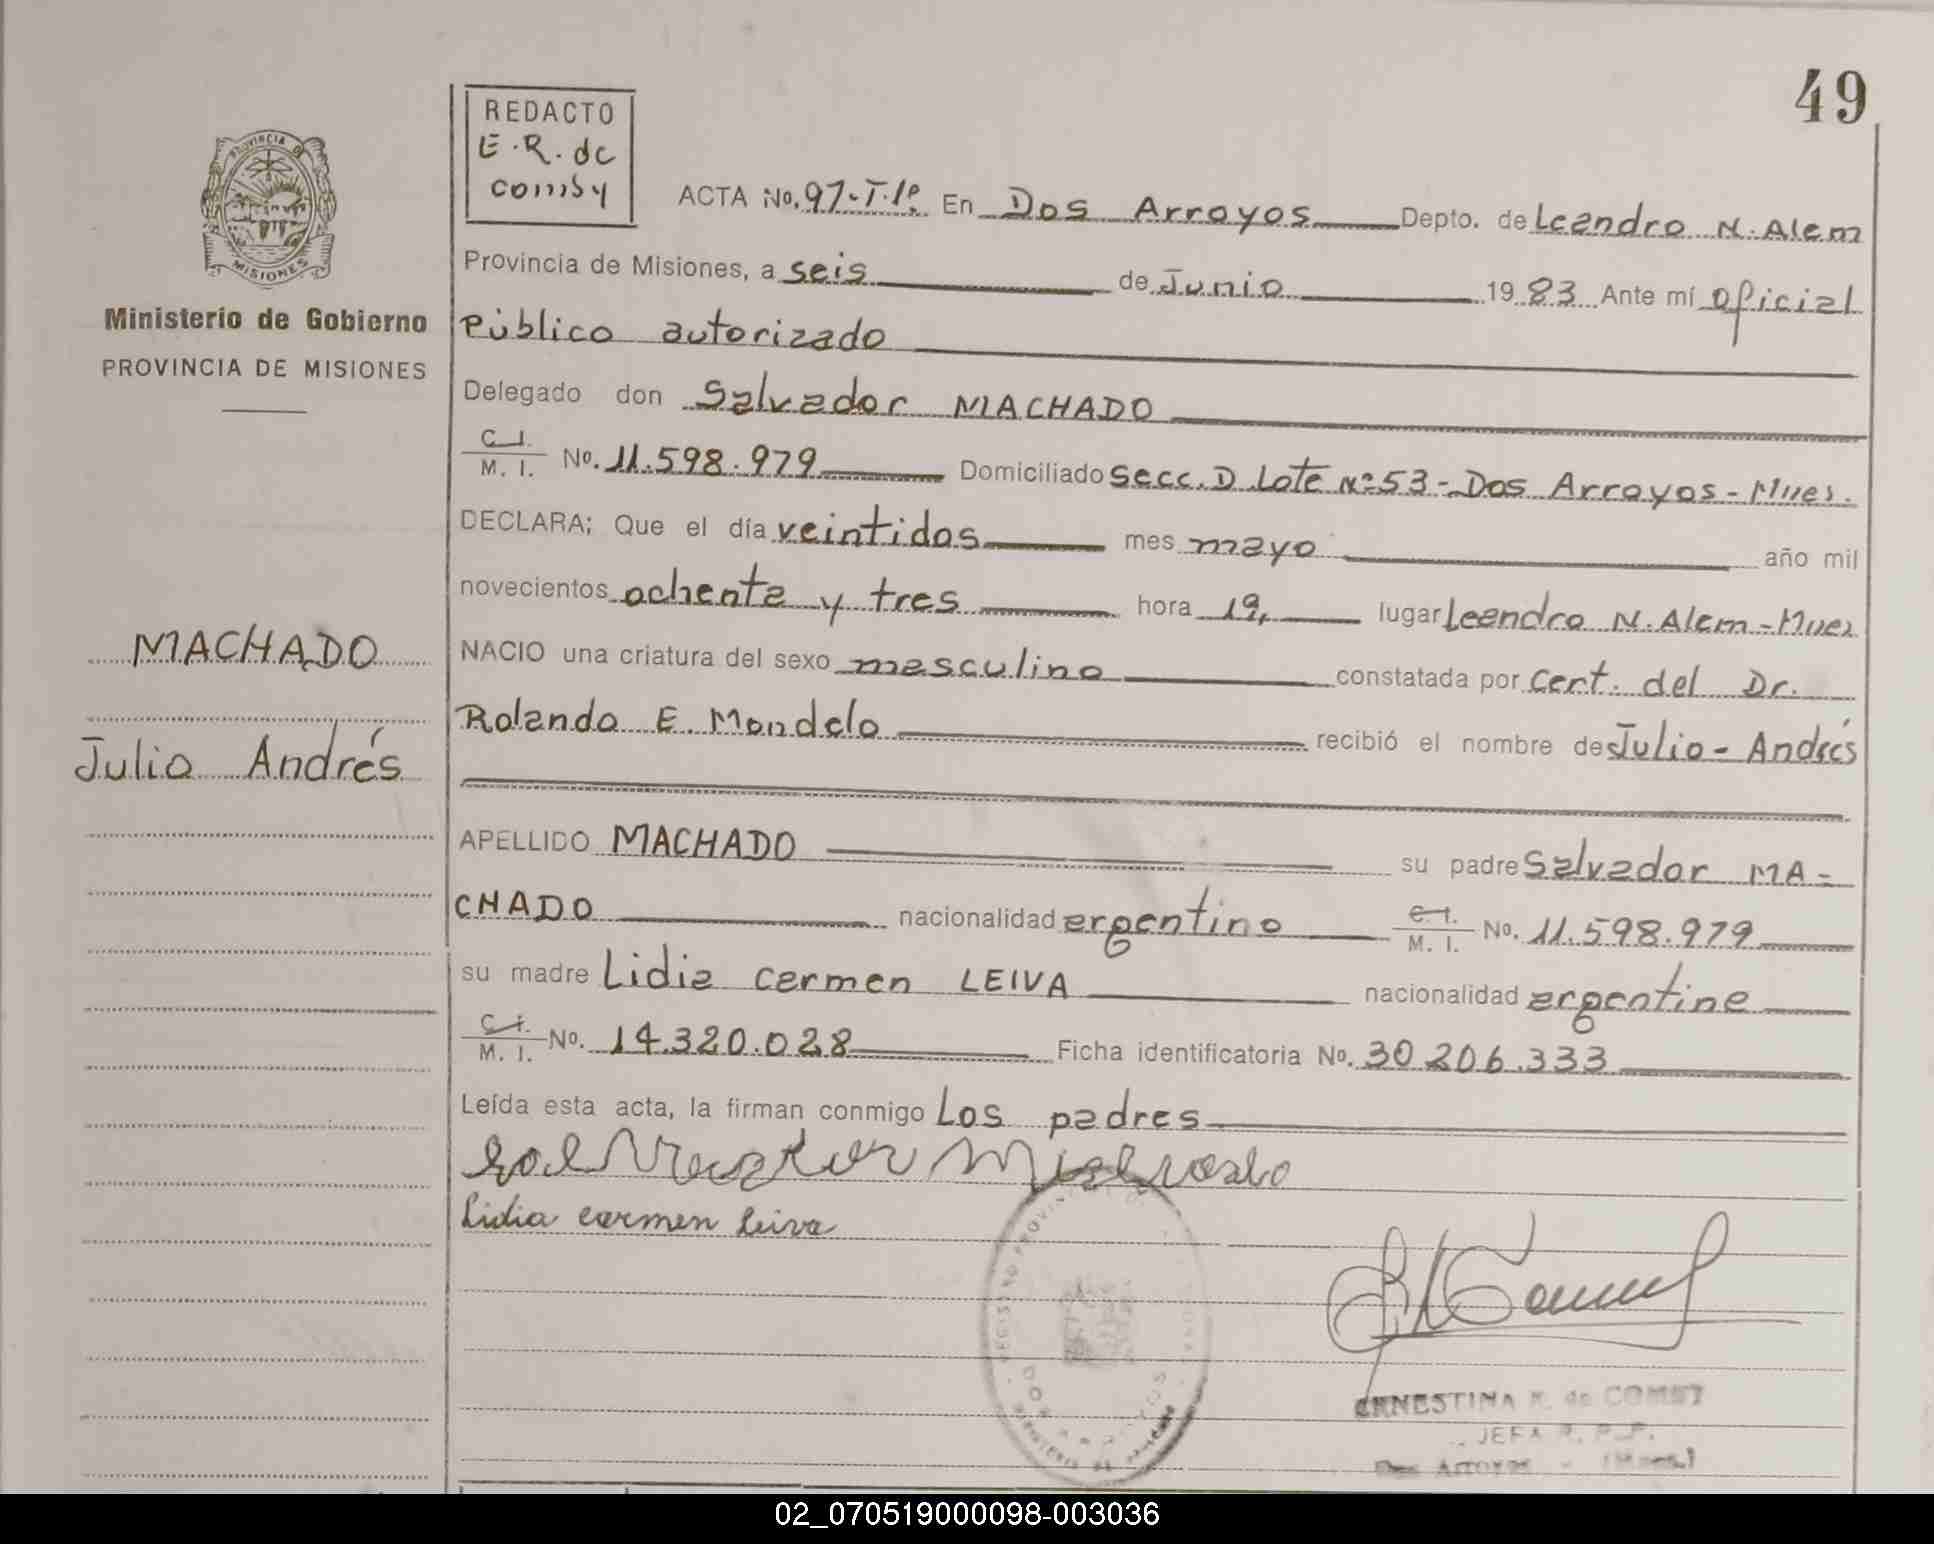 49
REDACTO
E.R. de
comby
PROVINCIA DE
MISIONES
Ministerio de Gobierno
PROVINCIA DE MISIONES
ACTA No. 97-T.1º. En Dos Arroyos Depto. de Leandro N. Alem
Provincia de Misiones, a seis de Junio 1983 Ante mí oficial
Público autorizado
Delegado don Salvador MACHADO
C.I.
M. I. No. 11.598.979 Domiciliado secc. D Lote Nº 53 - Dos Arroyos - Mnes.
DECLARA; Que el día veintidos mes mayo año mil
novecientos ochenta y tres hora 19, lugar Leandro N. Alem - Mnes
NACIO una criatura del sexo masculino constatada por cert. del Dr.
Rolando E. Mondelo recibió el nombre de Julio - Andrés
APELLIDO MACHADO su padre Salvador MA-
CHADO nacionalidad argentino C.I.
M. I. No. 11.598.979
su madre Lidia Carmen LEIVA nacionalidad argentina
C.I.
M. I. No. 14.320.028 Ficha identificatoria No. 30.206.333
Leída esta acta, la firman conmigo Los padres
Lidia carmen Leiva
MACHADO
Julio Andrés
ERNESTINA R. de COMBY
JEFA R. P. P.
Dos Arroyos - (Mnes.)
02_070519000098-003036